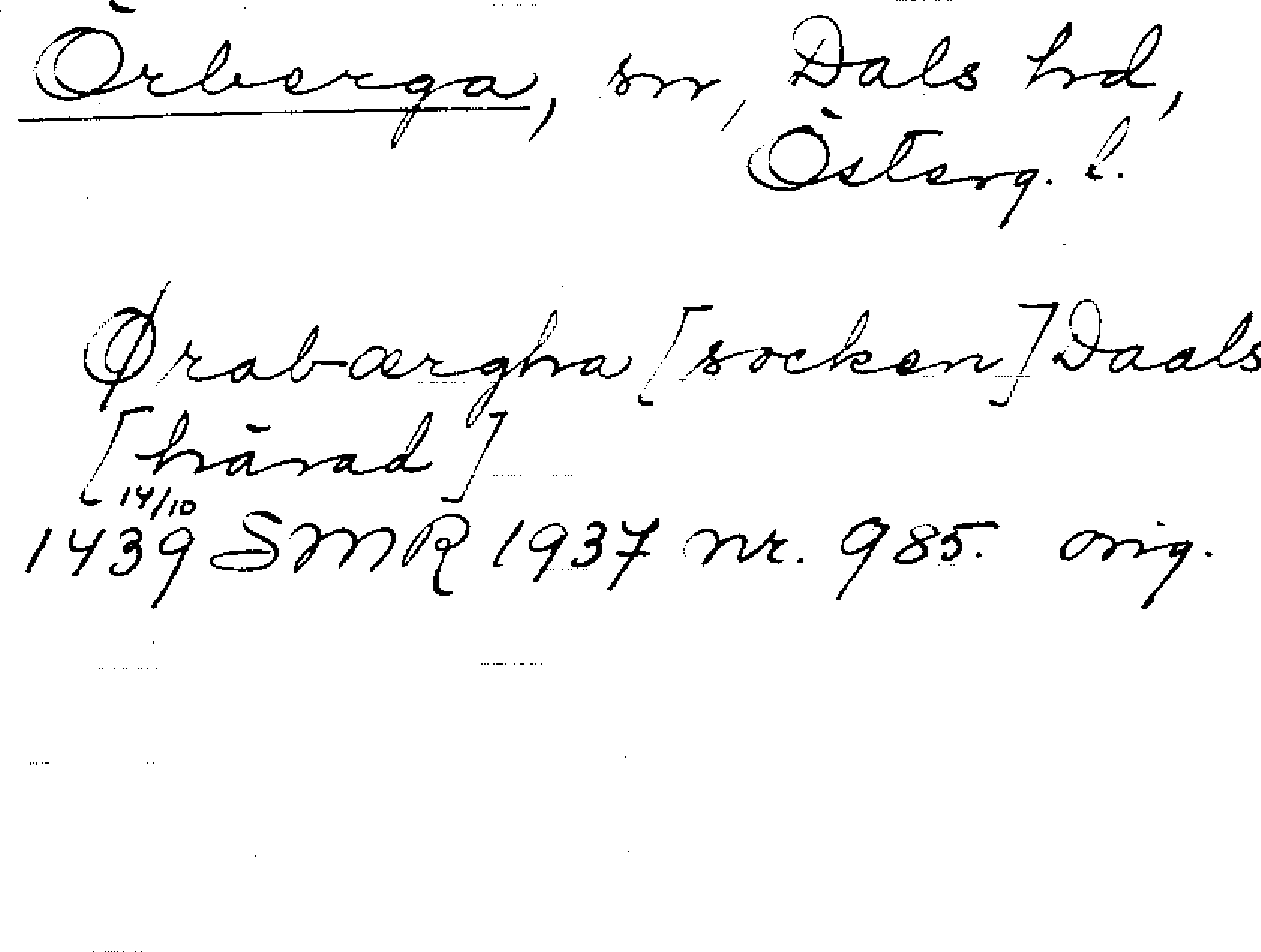 Örberga, sn, Dals hd,
Österg. l.
Ørabærgha [socken] Daals
[härad]
14/10
1439 SMR 1937 nr. 985. orig.